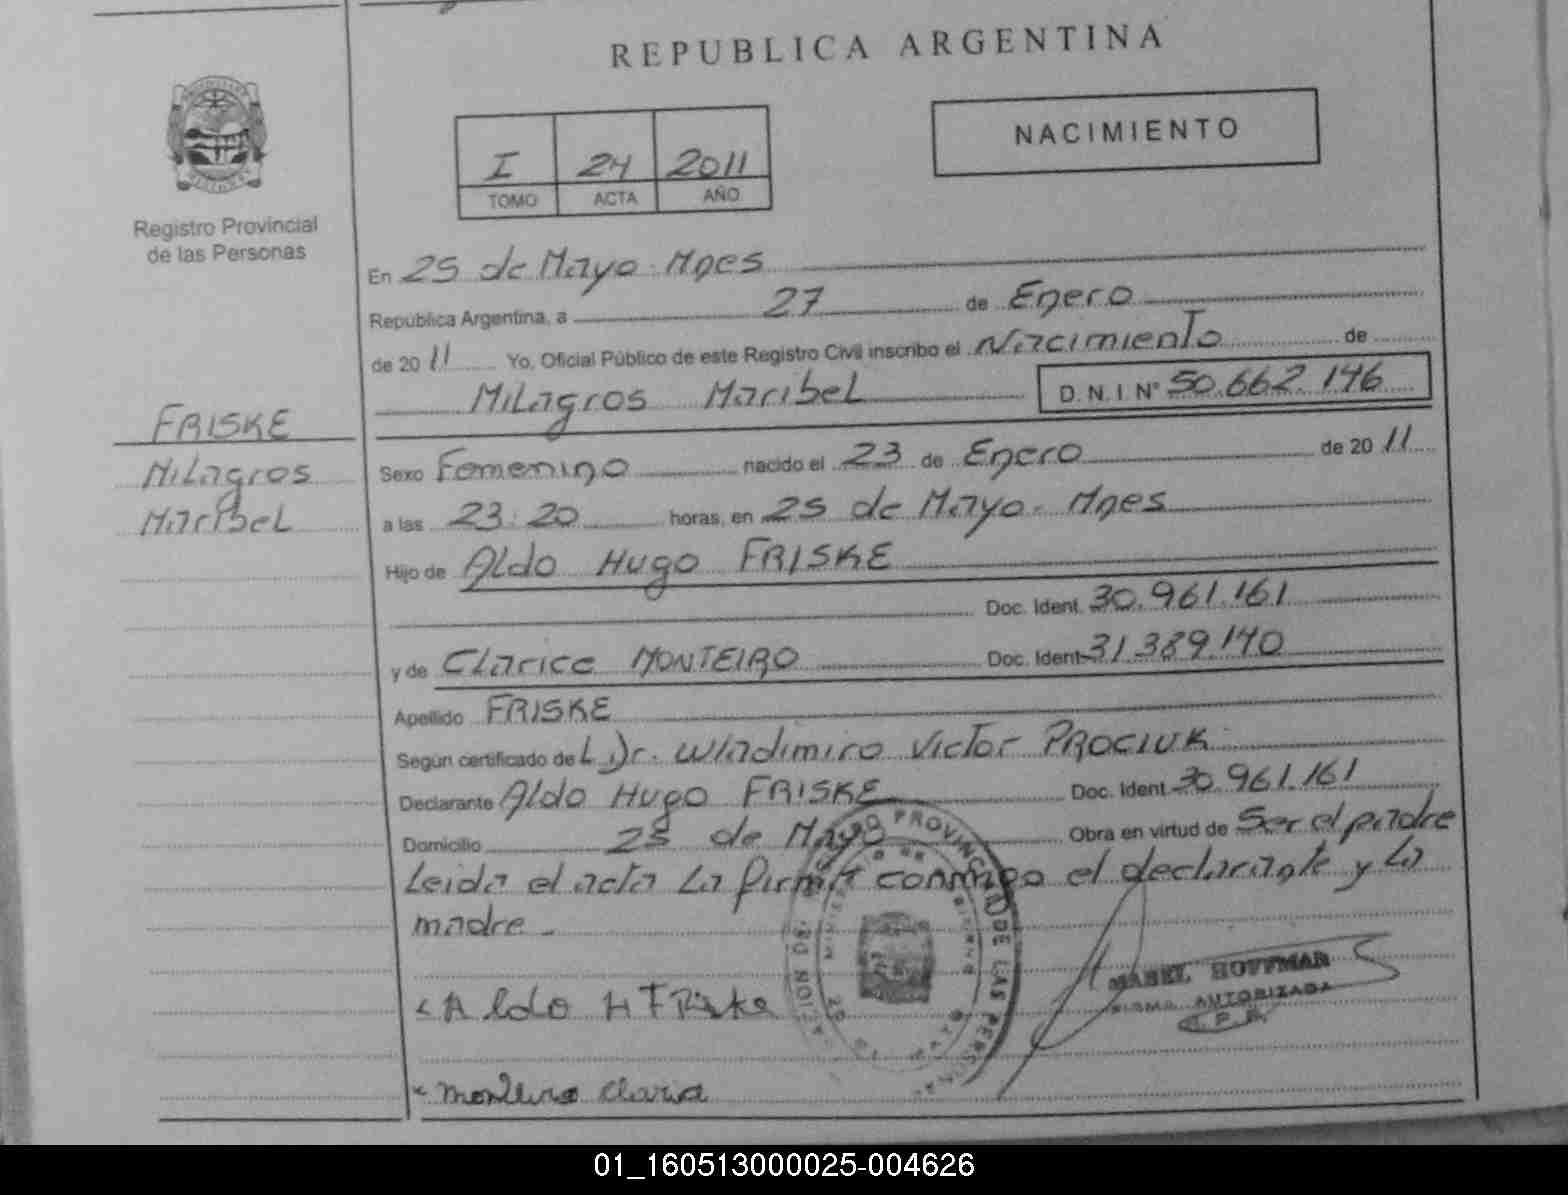 REPUBLICA ARGENTINA
NACIMIENTO
I 24 2011
TOMO ACTA AÑO
Registro Provincial
de las Personas
En 25 de Mayo. Mnes
República Argentina, a 27 de Enero
de 2011 Yo, Oficial Público de este Registro Civil inscribo el Nacimiento de
Milagros Maribel D.N.I. N° 50.662.146
FRISKE
Milagros
Maribel
Sexo Femenino nacido el 23 de Enero de 2011
a las 23:20 horas, en 25 de Mayo. Mnes
Hijo de Aldo Hugo FRISKE
Doc. Ident. 30.961.161
y de Clarice MONTEIRO Doc. Ident. 31.389.140
Apellido FRISKE
Según certificado del Dr. Wladimiro Victor PROCIUK
Declarante Aldo Hugo FRISKE Doc. Ident. 30.961.161
Domicilio 25 de Mayo Obra en virtud de Ser el padre
Leida el acta La firma conmigo el declarante y La
madre.
REGISTRO PROVINCIAL DE LAS PERSONAS
Aldo H Friske
MABEL HOFFMAN
FIRMA AUTORIZADA
R.P.P.
Monteiro Clarice
01_160513000025-004626